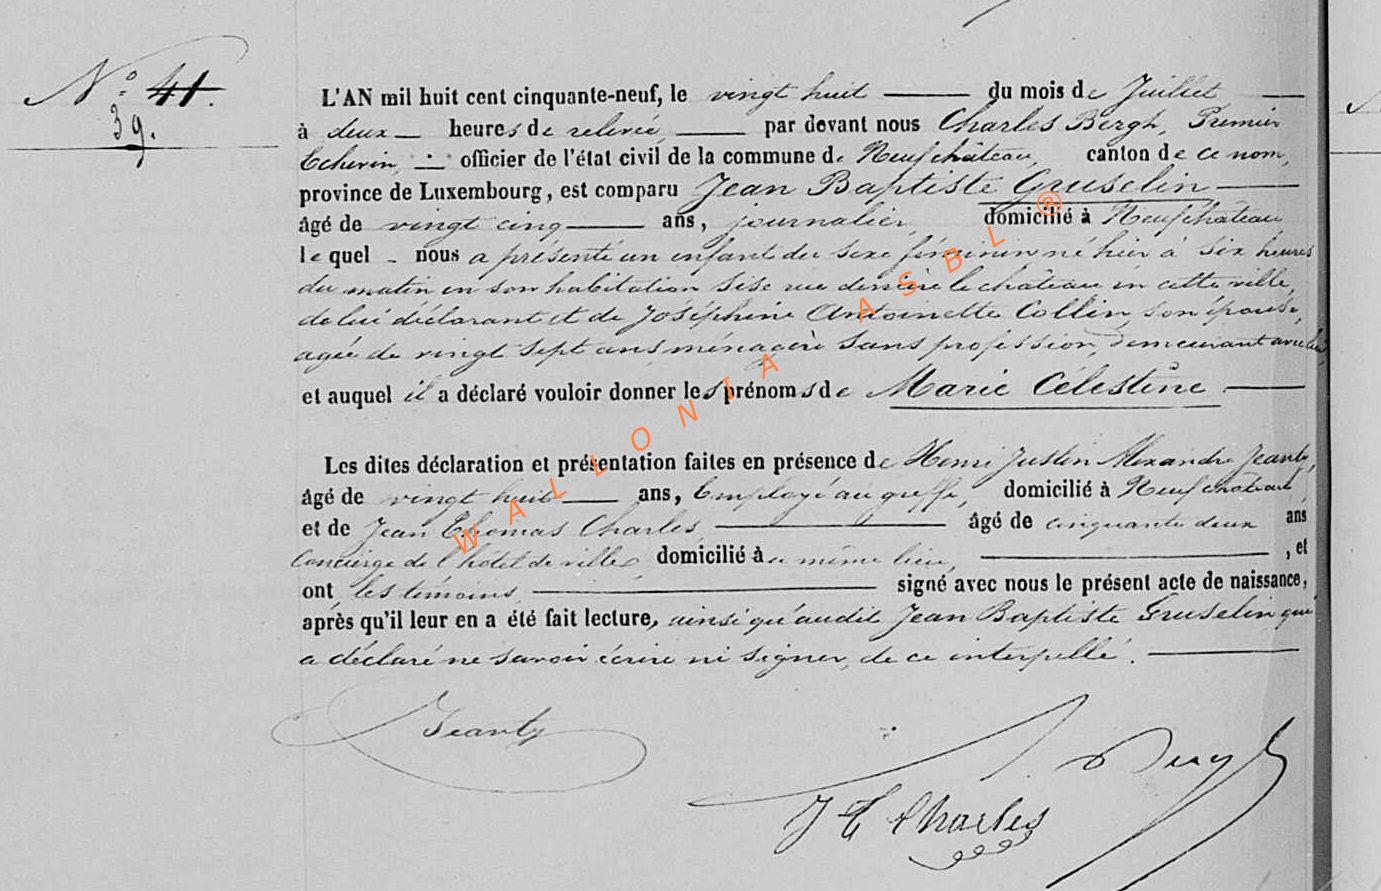 N° 41.
39.
L'AN mil huit cent cinquante-neuf, le vingt huit du mois de Juillet
à deux heures de relevée, par devant nous Charles Bergh, Premier
Echevin, officier de l'état civil de la commune de Neufchâteau, canton de ce nom,
province de Luxembourg, est comparu Jean Baptiste Gruselin
âgé de vingt cinq ans, journalier, domicilié à Neufchâteau
lequel nous a présenté un enfant du sexe féminin né hier à six heures
du matin en son habitation sise rue derrière le château en cette ville,
de lui déclarant et de Joséphine Antoinette Collin, son épouse,
agée de vingt sept ans ménagère sans profession, demeurant avec lui
et auquel il a déclaré vouloir donner les prénoms de Marie Célestine
Les dites déclaration et présentation faites en présence de Henri Justin Alexandre Jeanty,
âgé de vingt huit ans, Employé au greffe, domicilié à Neufchateau
et de Jean Thomas Charles âgé de cinquante deux ans
Concierge de l'hôtel de ville, domicilié à ce même lieu, , et
ont les témoins, signé avec nous le présent acte de naissance,
après qu'il leur en a été fait lecture, ainsi qu'audit Jean Baptiste Gruselin qui
a déclaré ne savoir écrire ni signer, de ce interpellé.
Jeanty
J T Charles
WALLONIA ASBL ®